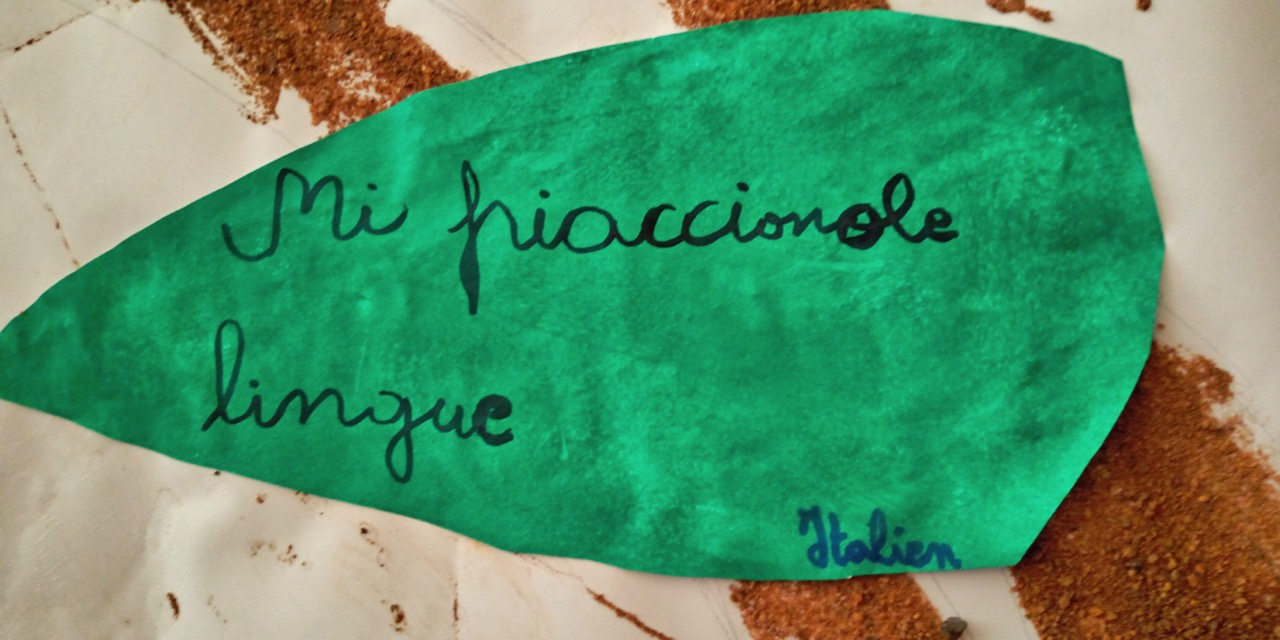 Mi piaccionole
lingue
Italien